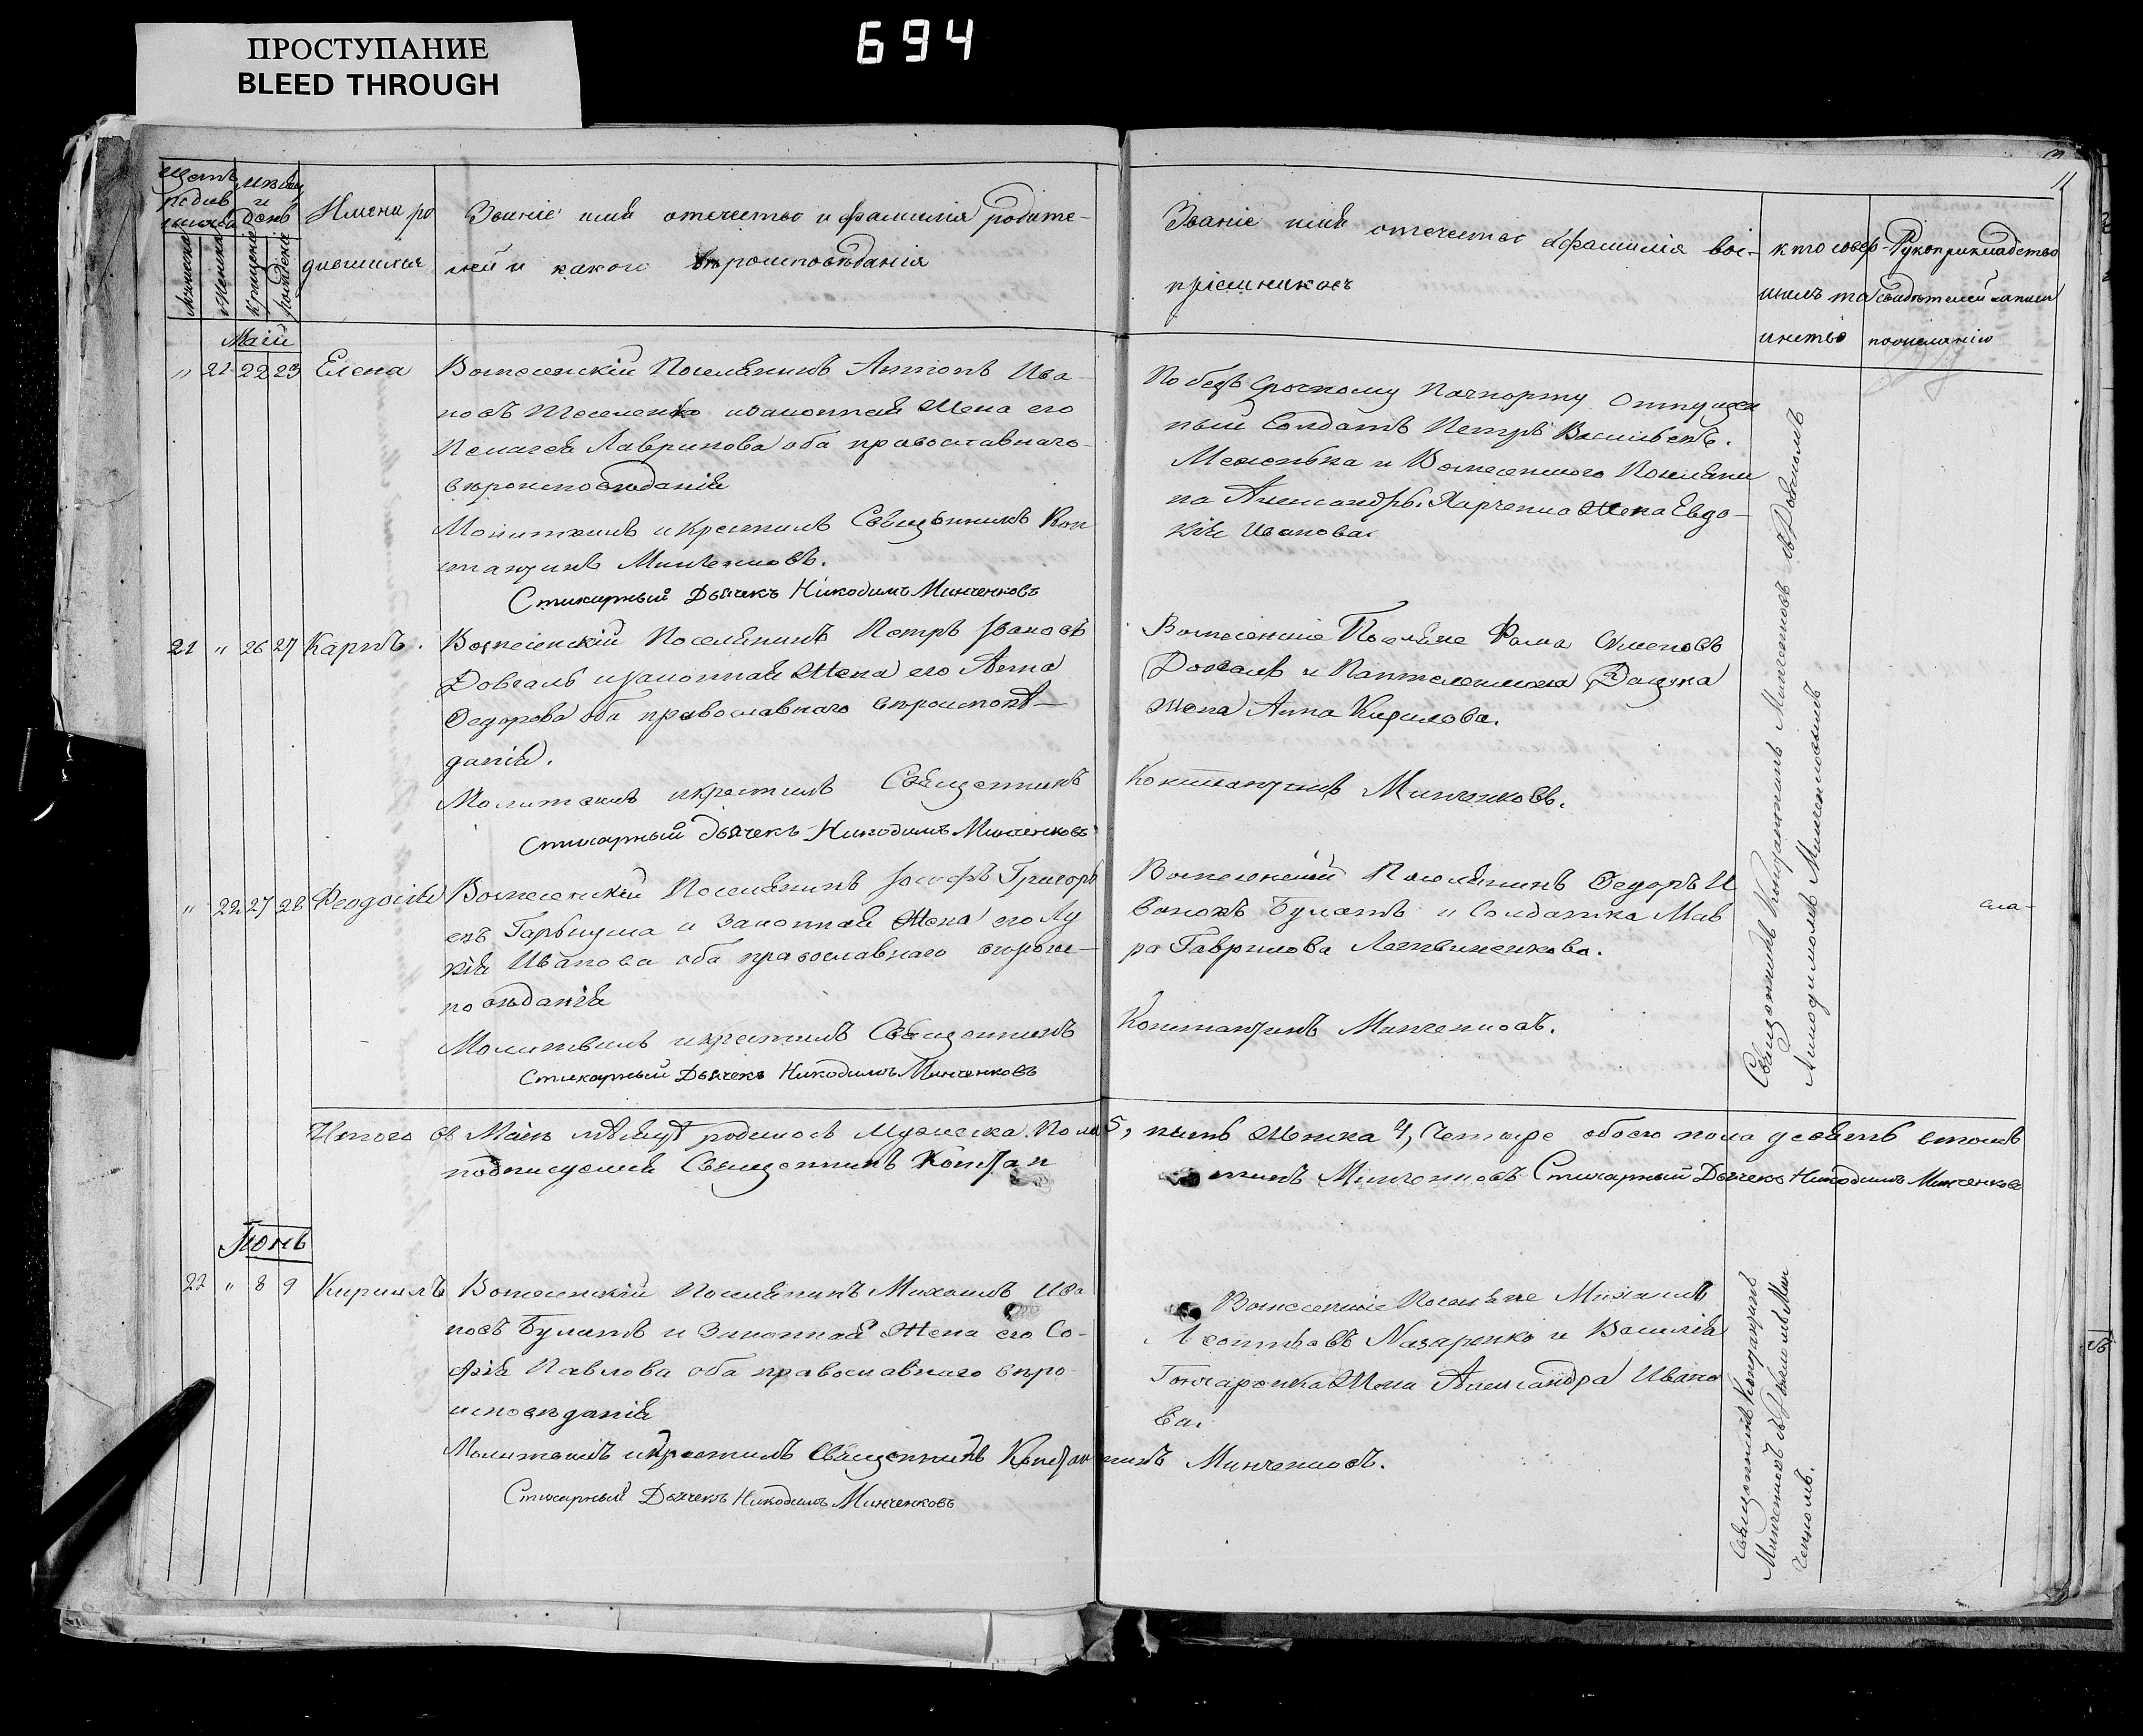 ПРОСТУПАНИЕ
BLEED THROUGH
694
11
Щетъ родив
Мѣсяц и день
Имена ро
дившихся
Званіе имя отечество и фамилія родите-
лей и какого вѣроисповѣданія
Званіе имя отечество и фамилія вос-
пріемниковъ
кто совер-
шилъ та
инство
Рукоприкладство
свидѣтелей записи
по желанію
Маій
" 21 22 23 Елена
Вознесенскій Поселянинъ Антонъ Ива
новъ изаконная Жена его
Пелагея Лавринова оба православнаго
вѣроисповѣданія
Молитвилъ и крестилъ Священникъ Кон
стантинъ Минченковъ.
Стихарный Дьячекъ Никодимъ Минченковъ
По безъ Срочному Пачпорту Отпущен
ный Солдатъ Петръ Васильевъ
и Вознесенского Поселяни
на Александръ Харченка Жена Евдо-
кія Иванова
21 " 26 27 Карпъ.
Вознесенскій Поселянинъ Петръ Ивановъ
Довгаль изаконная Жена его Анна
Федорова оба православнаго вѣроисповѣ-
данія.
Молитвилъ икрестилъ Священникъ
Стихарный Дьячекъ Никодимъ Минченковъ
Вознесенскіе Поселяне Фома Семеновъ
Довгаль и Пантелеимона Дацика
жена Анна Кирилова.
Константинъ Минченковъ.
" 22 27 28 Феодосія
Вознесенскій Поселянинъ Іосифъ Григорь
евъ Гарбузма и Законная Жена его Лу
кія Иванова оба православнаго вѣроис-
повѣданія
Молитвилъ икрестилъ Священникъ
Стихарный Дьячекъ Никодимъ Минченковъ
Вознесенскій Поселянинъ Федоръ И
вановъ Булатъ и Солдатка Мав
ра Гаврилова Летвиненкова.
Константинъ Минченковъ.
Священникъ Константинъ Минченковъ
Никодимомъ Минченковымъ
Итого въ Маіи мѣсяцѣ родилось Мужеска Пола 5, пять Женска 4, Четыре обоего пола девять втомъ
подписуемся Священникъ Констан тинъ Минченковъ Стихарный Дьячекъ Никодимъ Минченковъ
Іюнь
22 " 8 9 Кириллъ
Вознесенскій Поселянинъ Михаилъ Ива
новъ Булатъ и Законная Жена его Со-
фія Павлова оба православнаго вѣро
исповѣданія
Молитвилъ икрестилъ Священникъ Константинъ Минченковъ.
Стихарный Дьячекъ Никодимъ Минченковъ
Вознесенскіе Поселяне Михаилъ
Леонтьевъ Назаренко и Василія
Гончаренка Жена Александра Ивано
ва.
Священникъ Константинъ